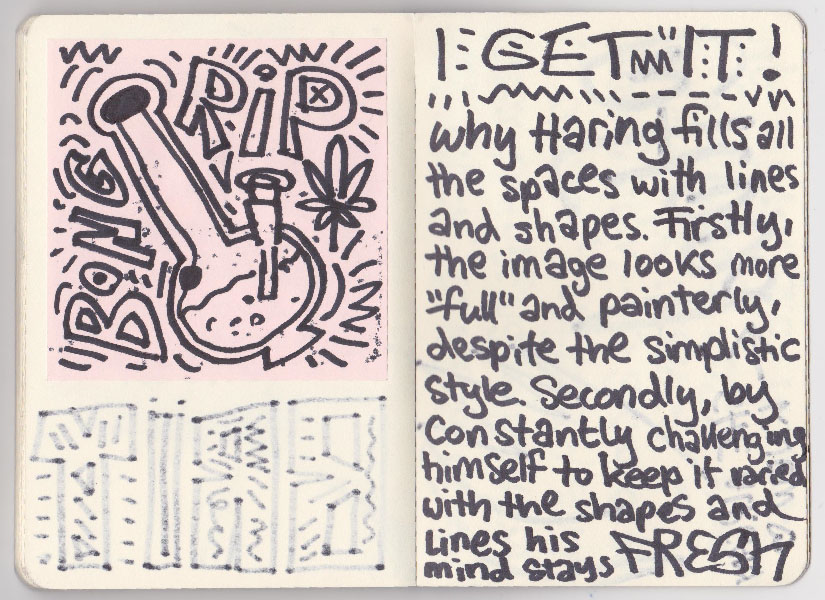 RiP
BONG
I GET IT!
why Haring fills all
the spaces with lines
and shapes. Firstly,
the image looks more
"full" and painterly,
despite the simplistic
style. Secondly, by
constantly challenging
himself to keep it varied
with the shapes and
lines his
mind stays FRESH